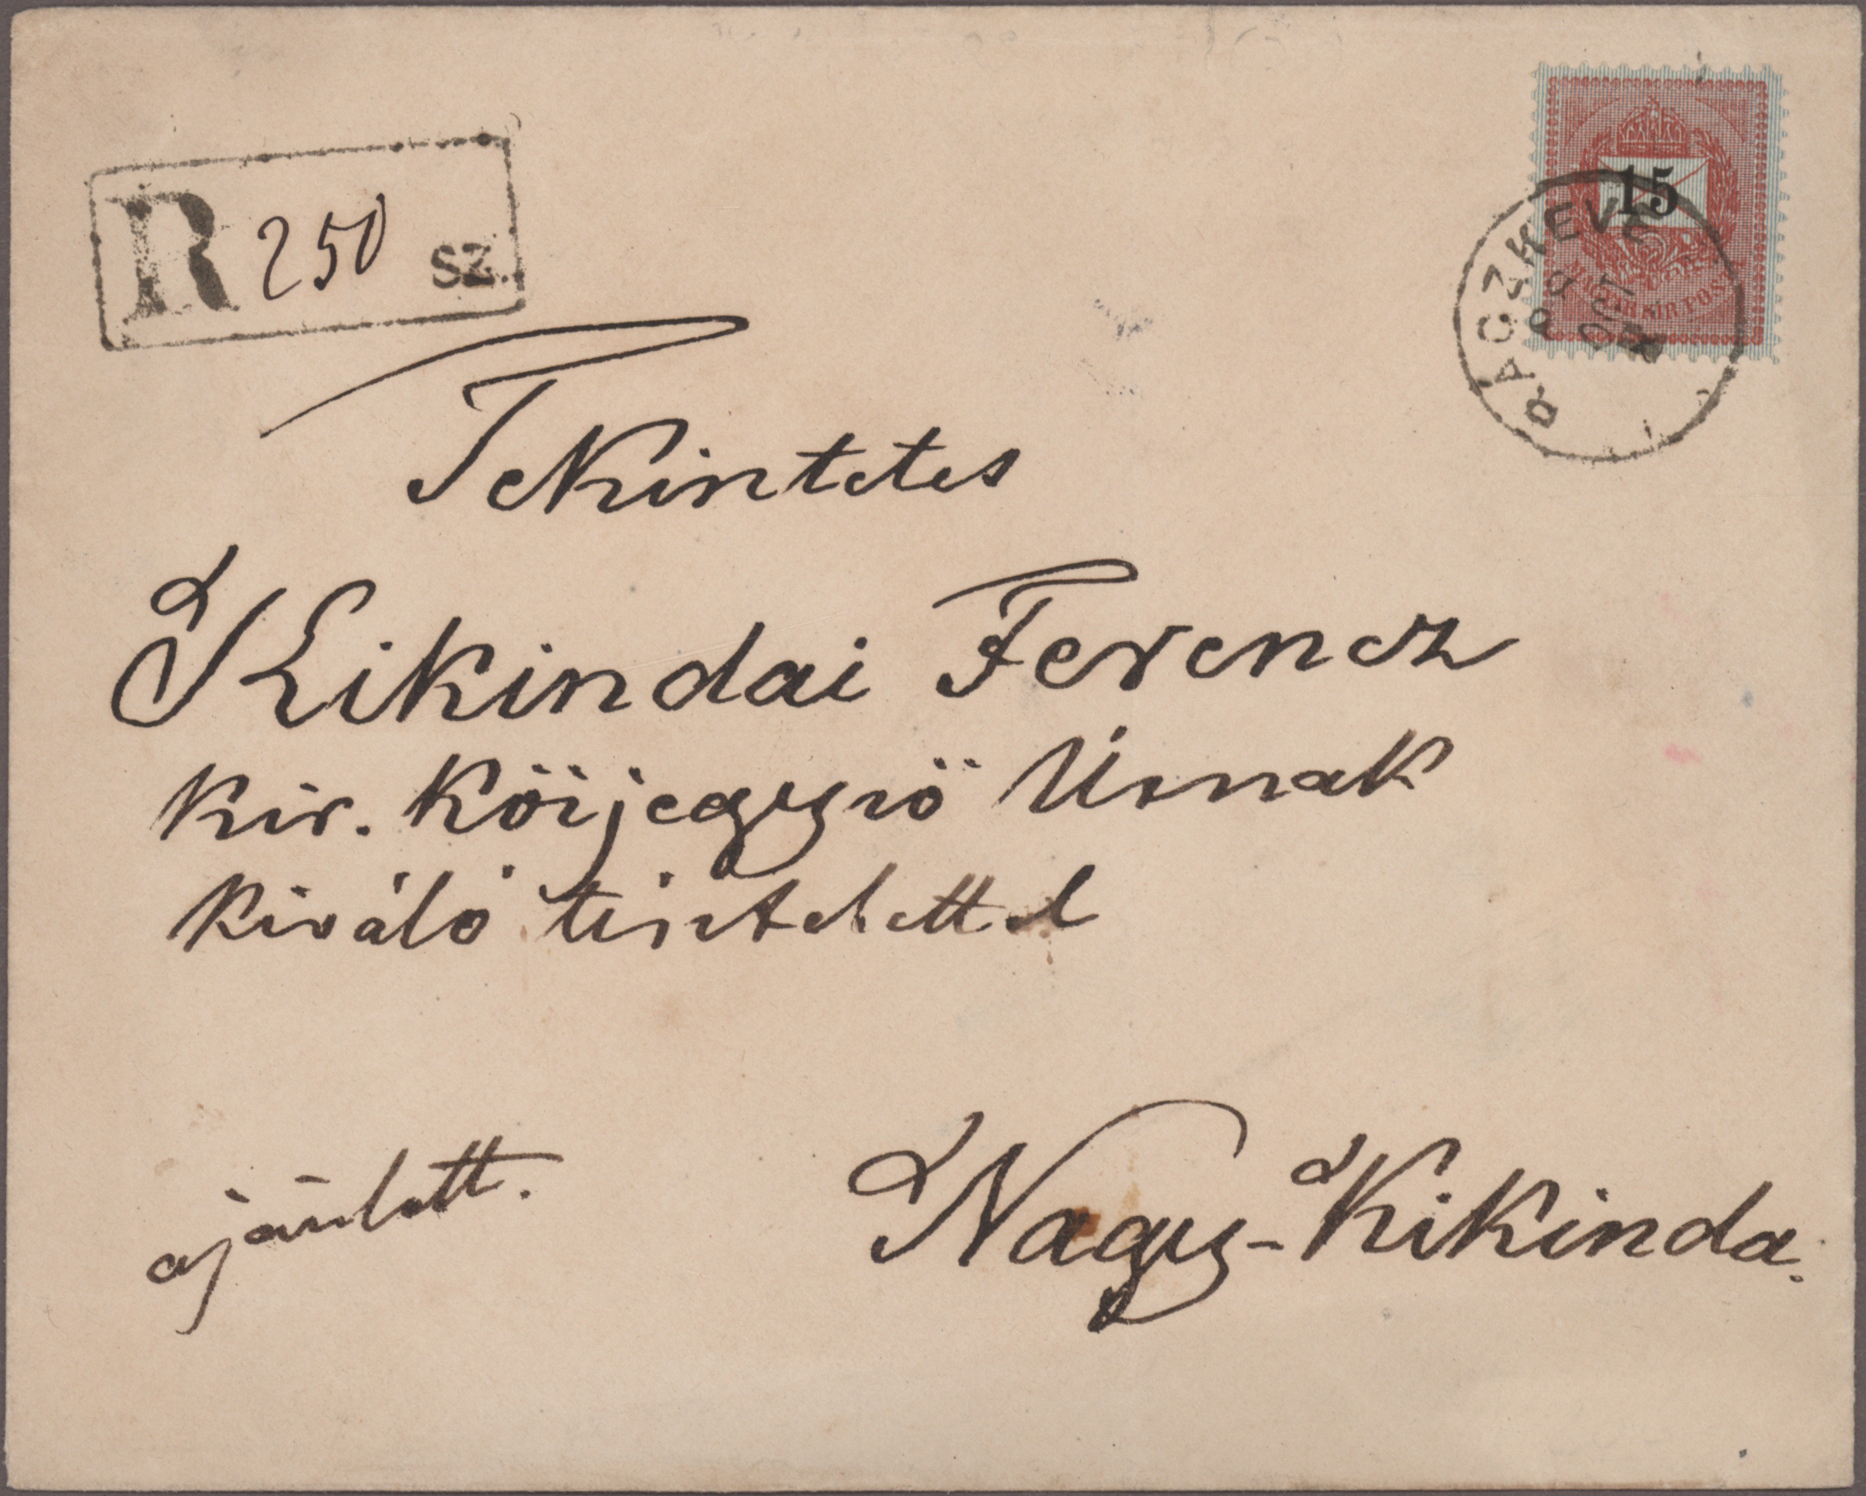 R 250 SZ.
15
MAGYAR KIR. POSTA
RACZKEVE
Tekintetes
Kikindai Ferencz
kir. közjegyző Úrnak
kiváló tisztelettel
ajánlott.
Nagy-Kikinda.